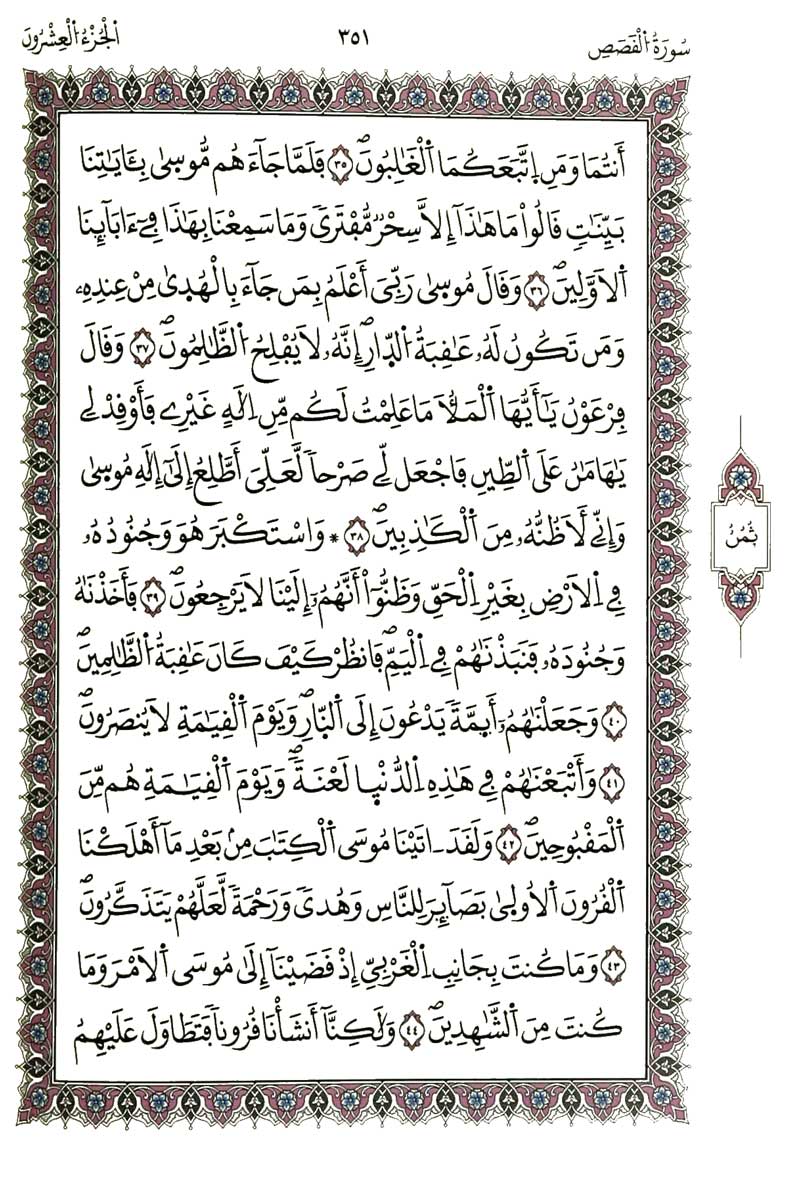 سُورَةُ الْقَصَصِ
٣٥١
الْجُزْءُ الْعِشْرُونَ
أَنتُمَا وَمَنِ اِتَّبَعَكُمَا اَلْغَٰلِبُونَۖ ٣٥ فَلَمَّا جَآءَهُم مُّوسۭيٰ بِـَٔايَٰتِنَا
بَيِّنَٰتٖ قَالُواْ مَا هَٰذَآ إِلَّا سِحْرٞ مُّفْتَرىٗ وَمَا سَمِعْنَا بِهَٰذَا فِےٓ ءَابَآئِنَا
اَلَاوَّلِينَۖ ٣٦ وَقَالَ مُوسۭيٰ رَبِّيَ أَعْلَمُ بِمَن جَآءَ بِالْهُدۭيٰ مِنْ عِندِهِۦ
وَمَن تَكُونُ لَهُۥ عَٰقِبَةُ اُلدّۭارِۖ إِنَّهُۥ لَا يُفْلِحُ اُلظَّٰلِمُونَۖ ٣٧ وَقَالَ
فِرْعَوْنُ يَٰٓأَيُّهَا اَلْمَلَأُ مَا عَلِمْتُ لَكُم مِّنِ اِلَٰهٍ غَيْرِے فَأَوْقِدْ لِے
يَٰهَٰمَٰنُ عَلَي اَلطِّينِ فَاجْعَل لِّے صَرْحاٗ لَّعَلِّيَ أَطَّلِعُ إِلَيٰٓ إِلَٰهِ مُوسۭيٰ
وَإِنِّے لَأَظُنُّهُۥ مِنَ اَلْكَٰذِبِينَۖ ٣٨ * وَاسْتَكْبَرَ هُوَ وَجُنُودُهُۥ
فِے اِلَارْضِ بِغَيْرِ اِلْحَقِّ وَظَنُّوٓاْ أَنَّهُمُۥٓ إِلَيْنَا لَا يَرْجِعُونَۖ ٣٩ فَأَخَذْنَٰهُ
وَجُنُودَهُۥ فَنَبَذْنَٰهُمْ فِے اِلْيَمِّۖ فَانظُرْ كَيْفَ كَانَ عَٰقِبَةُ اُلظَّٰلِمِينَۖ
٤٠ وَجَعَلْنَٰهُمُۥٓ أَئِمَّةٗ يَدْعُونَ إِلَي اَلنّۭارِۖ وَيَوْمَ اَلْقِيَٰمَةِ لَا يُنصَرُونَۖ
٤١ وَأَتْبَعْنَٰهُمْ فِے هَٰذِهِ اِلدُّنْيۭا لَعْنَةٗۖ وَيَوْمَ اَلْقِيَٰمَةِ هُم مِّنَ
اَلْمَقْبُوحِينَۖ ٤٢ وَلَقَدَ اٰتَيْنَا مُوسَي اَلْكِتَٰبَ مِنۢ بَعْدِ مَآ أَهْلَكْنَا
اَلْقُرُونَ اَلُاولۭيٰ بَصَآئِرَ لِلنَّاسِ وَهُدىٗ وَرَحْمَةٗ لَّعَلَّهُمْ يَتَذَكَّرُونَۖ
٤٣ وَمَا كُنتَ بِجَانِبِ اِلْغَرْبِيِّ إِذْ قَضَيْنَآ إِلَيٰ مُوسَي اَلَامْرَ وَمَا
كُنتَ مِنَ اَلشَّٰهِدِينَۖ ٤٤ وَلَٰكِنَّآ أَنشَأْنَا قُرُوناٗ فَتَطَاوَلَ عَلَيْهِمُ
ثُمُنُ